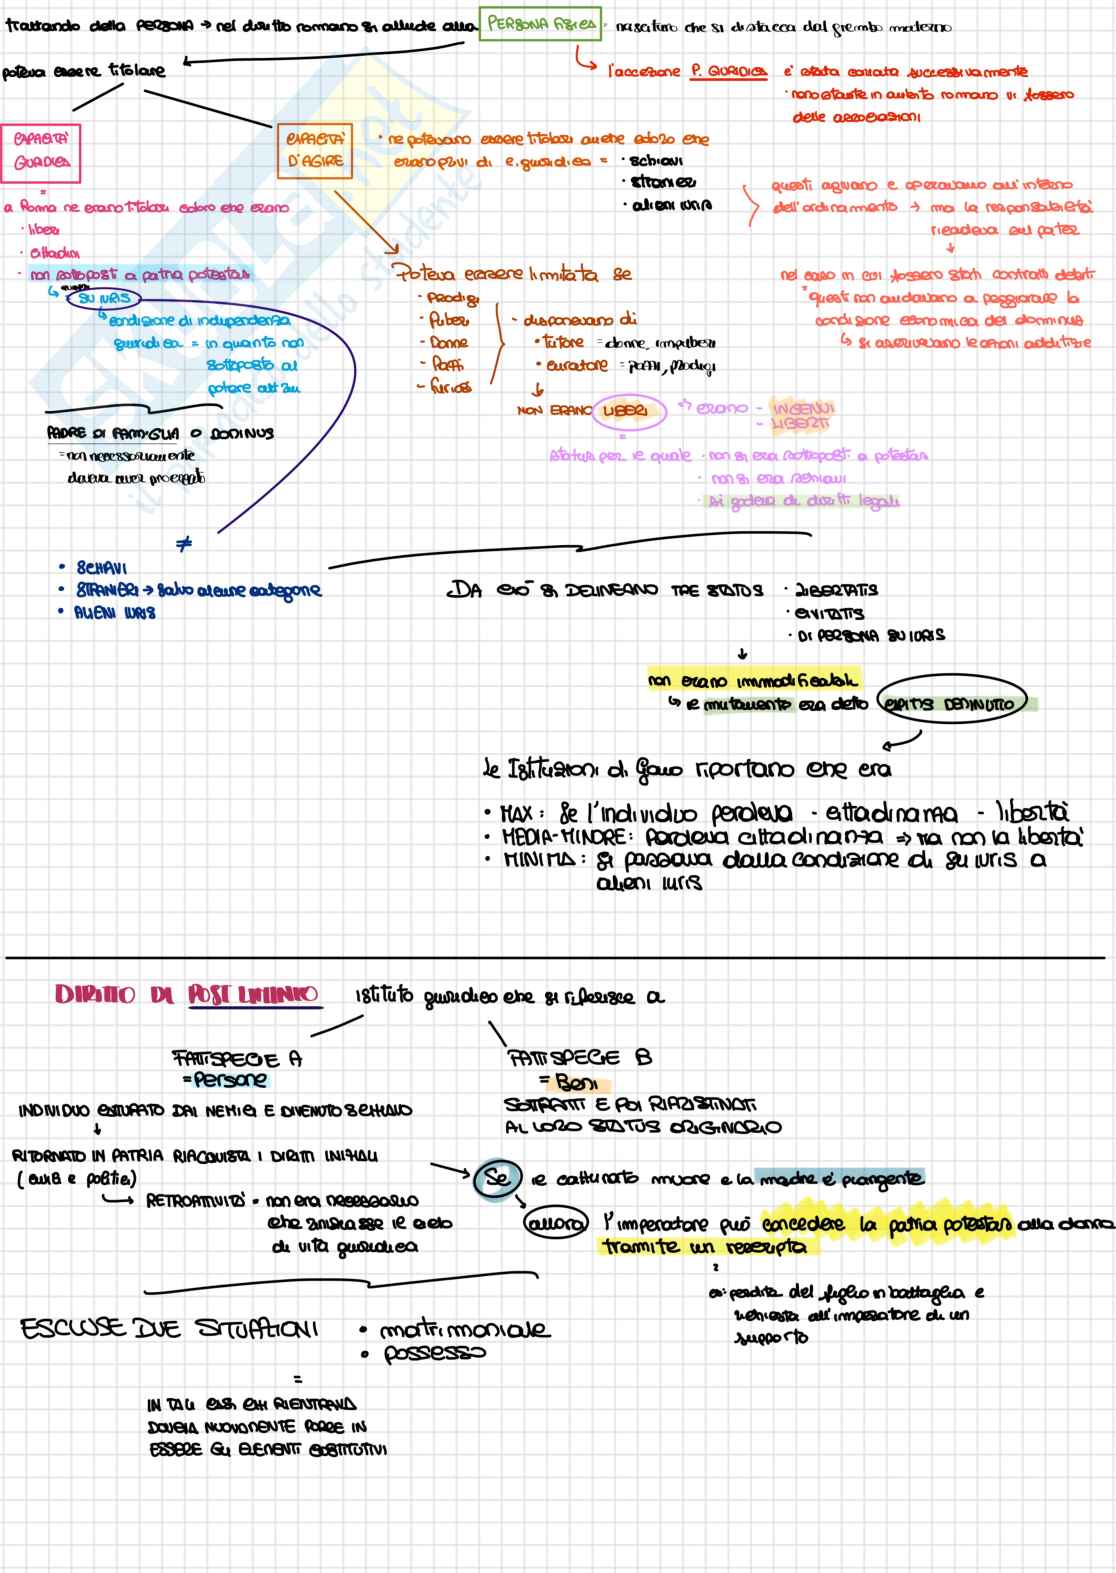 trattando della PERSONA → nel diritto romano si allude alla PERSONA FISICA · nascituro che si distacca dal grembo materno
poteva essere titolare
l'accezione P. GIURIDICA e' stata coniata successivamente
· nonostante in ambito romano vi fossero
delle associazioni
CAPACITA'
GIURIDICA
CAPACITA'
D'AGIRE
· ne potevano essere titolari anche coloro che
erano privi di c. giuridica = · schiavi
· stranieri
· alieni iuris
questi agivano e operavano all'interno
dell'ordinamento → ma la responsabilità
ricadeva sul pater
↓
nel caso in cui fossero stati contratti debiti
questi non andavano a peggiorare la
condizione economica del dominus
↳ si asserivano le azioni adiettizie
=
a Roma ne erano titolari coloro che erano
· liberi
· cittadini
· non sottoposti a patria potestas
↳ SUI IURIS
↳ condizione di indipendenza
giuridica = in quanto non
sottoposto al
potere altrui
PADRE DI FAMIGLIA O DOMINUS
= non necessariamente
doveva aver procreato
Poteva essere limitata se
- Prodigi
- Puberi
- Donne
- Pazzi
- furiosi
- disponevano di
• tutore = donne, impuberi
• curatore = pazzi, prodigi
↓
NON ERANO LIBERI → erano - INGENUI
- LIBERTI
=
status per le quale · non si era sottoposti a potestas
· non si era schiavi
· si godeva di diritti legali
≠
• SCHIAVI
• STRANIERI → salvo alcune categorie
• ALIENI IURIS
DA CIÒ SI DELINEANO TRE STATUS · LIBERTATIS
· CIVITATIS
· DI PERSONA SUI IURIS
↓
non erano immodificabili
↳ il mutamento era detto CAPITIS DEMINUTIO
le Istituzioni di Gaio riportano che era
• MAX: se l'individuo perdeva - cittadinanza - libertà
• MEDIA-MINORE: perdeva cittadinanza ⇒ ma non la libertà
• MINIMA: si passava dalla condizione di sui iuris a
alieni iuris
DIRITTO DI POSTLIMINIO istituto giuridico che si riferisce a
FATTISPECIE A
= Persone
FATTISPECIE B
= Beni
INDIVIDUO CATTURATO DAI NEMICI E DIVENUTO SCHIAVO
SOTTRATTI E POI RIPRISTINATI
AL LORO STATUS ORIGINARIO
↓
RITORNATO IN PATRIA RIACQUISTA I DIRITTI INIZIALI
(civili e politici)
→ RETROATTIVITA' = non era necessario
che iniziasse il ciclo
di vita giuridica
Se il catturato muore e la madre è piangente
allora l'imperatore può concedere la patria potestas alla donna
tramite un rescripta
es: perdita del figlio in battaglia e
richiesta all'imperatore di un
supporto
ESCLUSE DUE SITUAZIONI • matrimoniale
• possesso
=
IN TALI CASI CHI RIENTRAVA
DOVEVA NUOVAMENTE PORRE IN
ESSERE GLI ELEMENTI COSTITUTIVI